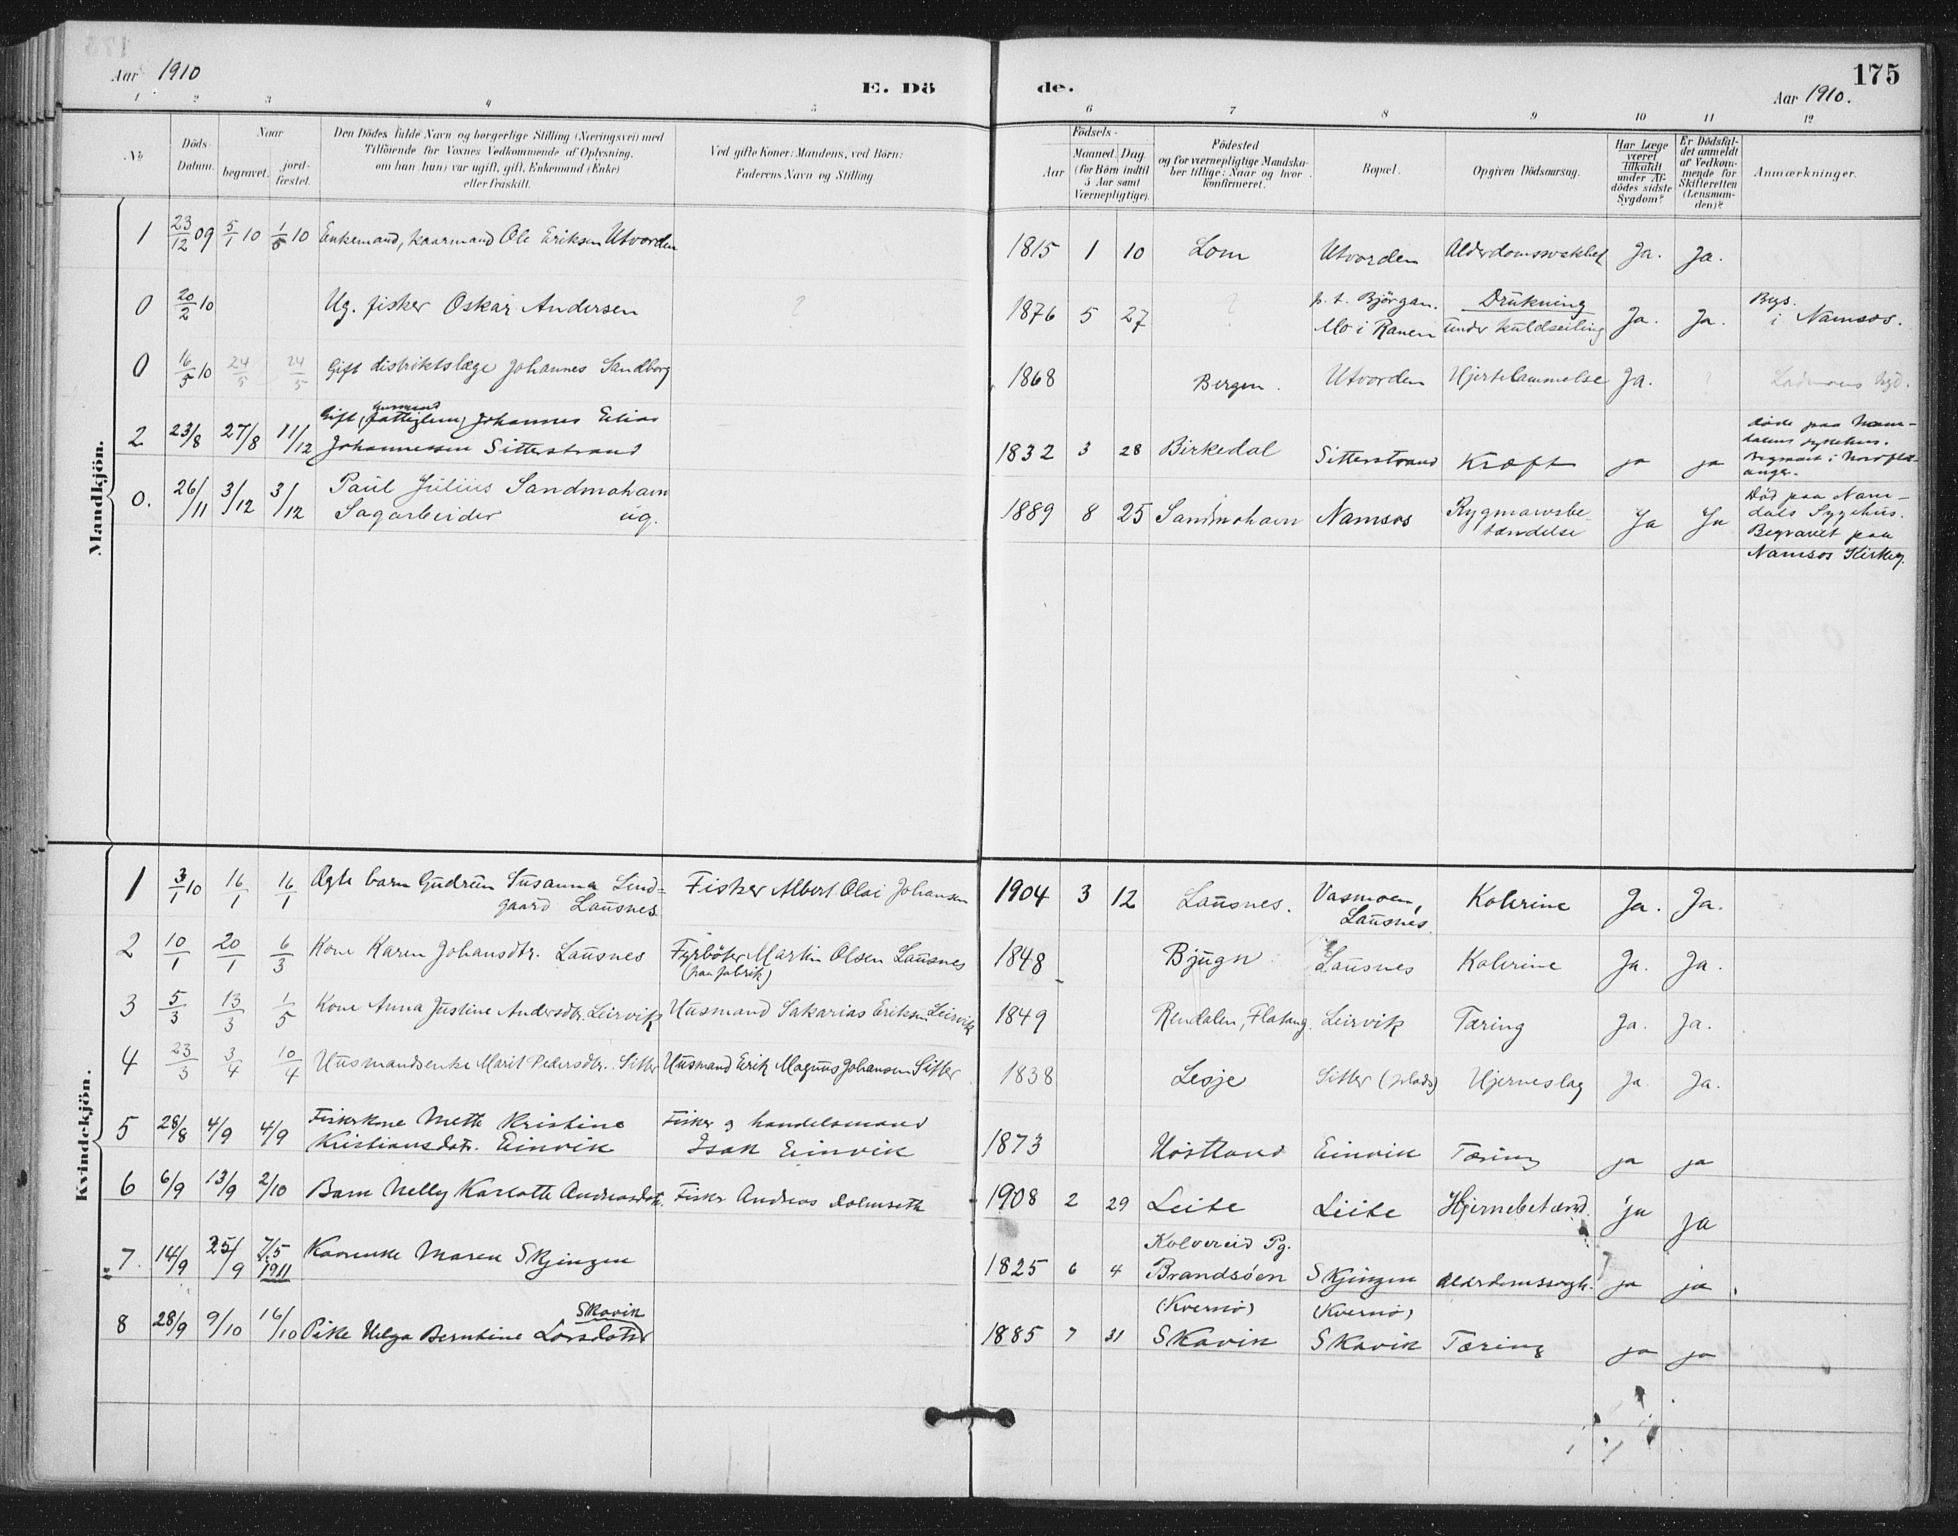 Aar 1910
E. Dö
de.
175
Aar 1910.
1 2 3 4 5 6 7 8 9 10 11 12
No
Döds-
Datum.
Naar
begravet.
jord-
fæstet.
Den Dödes fulde Navn og borgerlige Stilling (Næringsvei) med
Tilföiende for Voxnes Vedkommende af Oplysning,
om han (hun) var ugift, gift, Enkemand (Enke)
eller fraskilt.
Ved gifte Koner: Mandens, ved Börn:
Faderens Navn og Stilling.
Födsels-
Aar
Maaned. Dag.
(for Börn indtil
5 Aar samt
Værnepligtige).
Födested
og for værnepligtige Mandska-
ber tillige: Naar og hvor
konfirmeret.
Bopæl.
Opgiven Dödsaarsag.
Har Læge
været
tilkaldt
under Af-
dödes sidste
Sygdom?
Er Dödsfal-
det anmeldt
af Vedkom-
mende for
Skifteretten
(Lensman-
den)?
Anmærkninger.
Mandkjön.
1 23/12 09 5/1 10 1/5 10 Enkemand, kaarmand Ole Eriksen Utvorden 1815 1 10 Lom Utvorden Alderdomssvakhet Ja. Ja.
0 20/2 10 Ug. fisker Oskar Andersen ? 1876 5 27 ? p. t. Björgan.
Mo i Ranen Drukning
under kuldseiling Ja. Ja. Bys.
i Namsos.
0 16/5 10 24/5 24/5 Gift distriktslæge Johannes Sandborg 1868 Bergen. Utvorden Hjertelammelse Ja. ?
2 23/8 27/8 11/12 Gift, husmand (fattiglem) Johannes Elias
Johannessen Sitterstrand 1832 3 28 Birkedal Sitterstrand Kræft ja ja døde paa Nam-
dalens sykehus.
Begravet i Nordfla-
anger.
0. 26/11 3/12 3/12 Paul Julius Sandmohavn
Sagarbeider ug. 1889 8 25 Sandmohavn Namsos Rygmarvsbe-
tændelse Ja Ja Død paa Nam-
dals Sygehus.
Begravet paa
Namsos Kirkeg.
Kvindekjön.
1 3/1 10 16/1 16/1 Ægte barn Gudrun Susanna Lind-
gaard Lausnes Fisker Albert Olai Johansen 1904 3 12 Lausnes. Vasmoen,
Lausnes. Kolerine Ja. Ja.
2 10/1 20/1 6/3 Kone Karen Johansdtr. Lausnes Fyrbøter Martin Olsen Lausnes
(paa fabrik) 1848 Bjugn Lausnes Kolerine Ja. Ja.
3 5/3 13/3 1/5 Kone Anna Justine Andersdtr. Leirvik Husmand Sakarias Eriksen Leirvik 1849 Rendalen, Flatang. Leirvik Tæring Ja. Ja.
4 23/3 3/4 10/4 Husmandsenke Marit Pedersdtr. Sitter Husmand Erik Magnus Johansen Sitter 1838 Lesje Sitter (plads) Hjerneslag Ja. Ja.
5 28/8 4/9 4/9 Fiskerkone Mette Kristine
Kristiansdatr. Einvik Fisker og handelsmand
Isak Einvik 1873 Høstland Einvik Tæring ja ja
6 6/9 13/9 2/10 Barn Nelly Karlotte Andreasdat. Fisker Andreas Dolmseth 1908 2 29 Leite Leite Hjernebetænd. ja ja
7. 14/9 25/9 7/5 1911 Kaarenke Maren Skjingen 1825 6 4 Kolvereid Pg.
Brandsöen Skjingen Alderdomssvagh. ja ja
8 28/9 9/10 16/10 Pike Helga Berntine Larsdotter Skavik 1885 7 31 (Kvernø)
Skavik (Kvernø)
Skavik Tæring ja ja